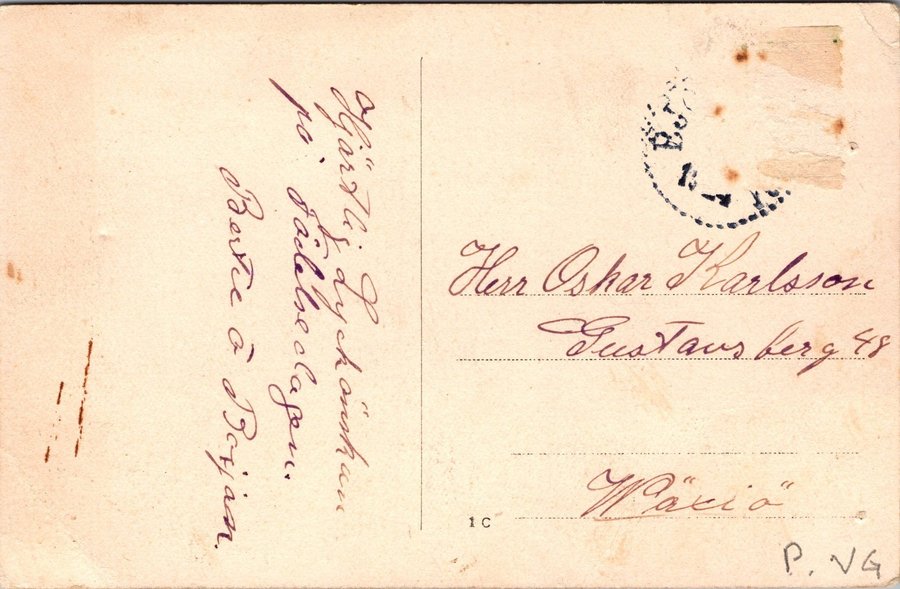 Hjärtlig Lyckönskan
på födelsedagen.
Bertie å Början.
EJ
Herr Oskar Karlsson
Gustavsberg 48
Wäxiö
1 C
P. VG